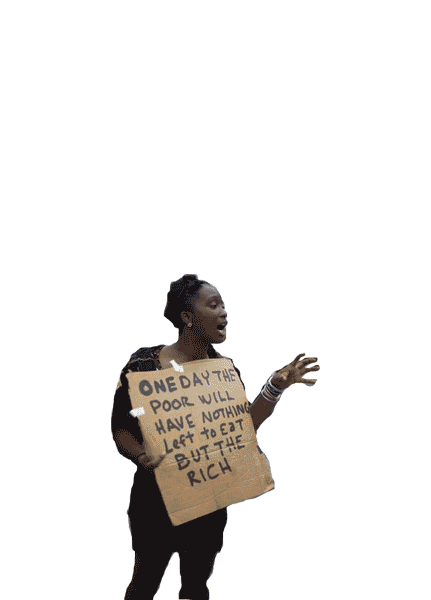 ONE DAY THE
POOR WILL
HAVE NOTHING
Left to EAT
BUT THE
RICH